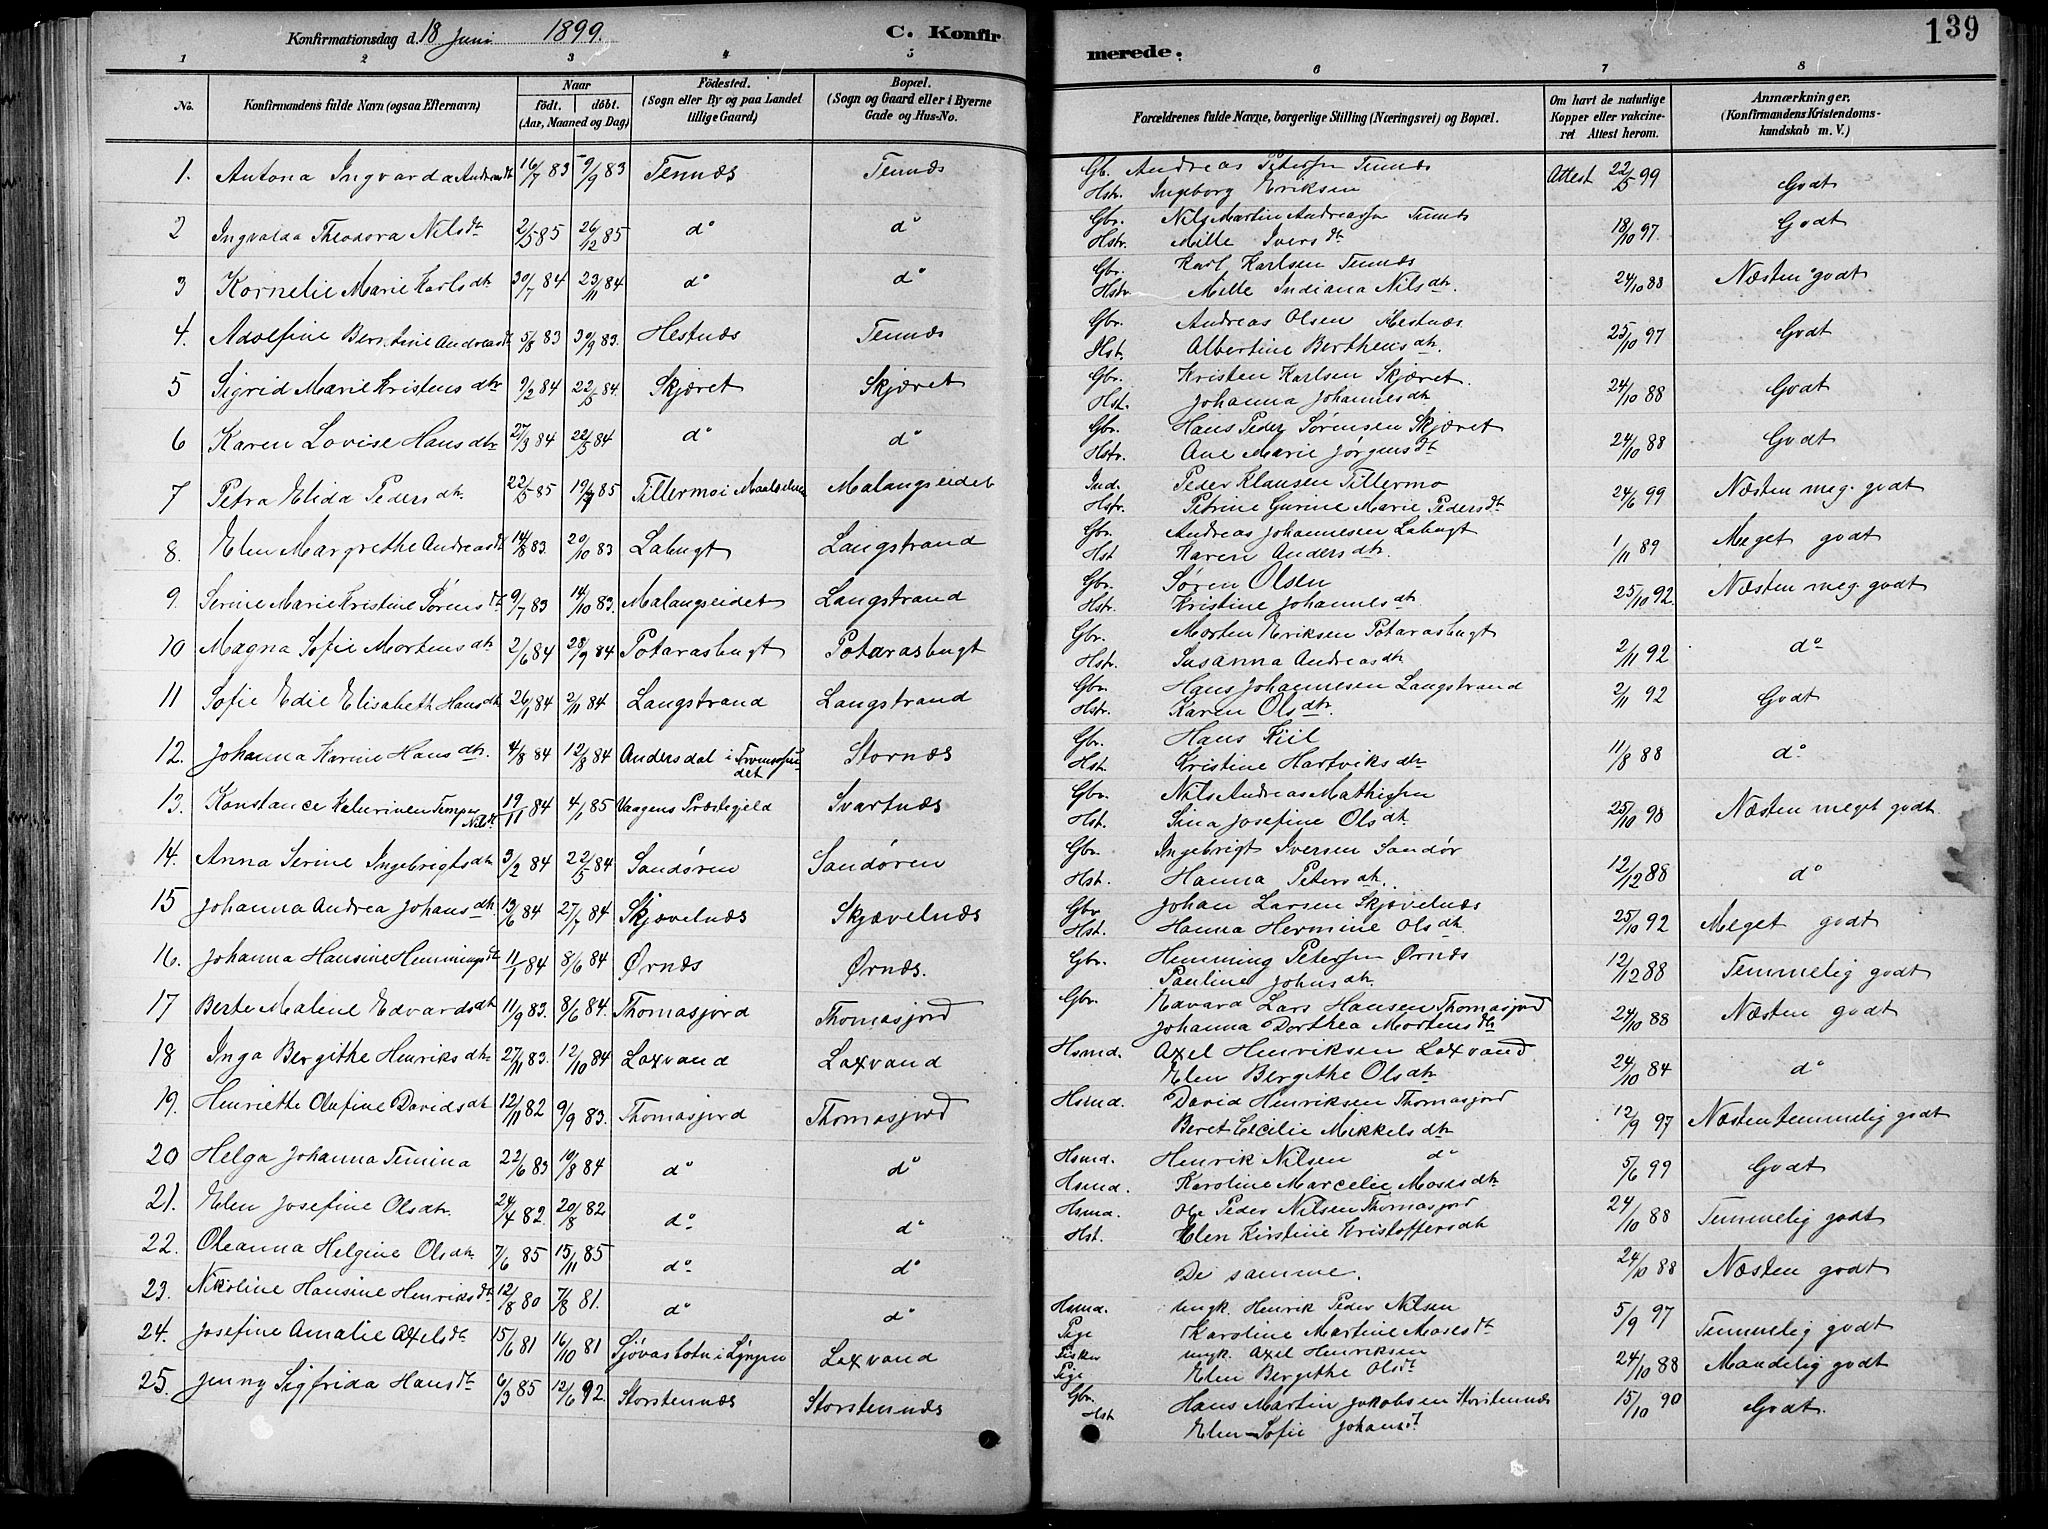 Konfirmationsdag d. 18 Juni 1899. C. Konfirmerede. 139
1 2 3 4 5 6 7 8
No. Konfirmandens fulde Navn (ogsaa Efternavn) Naar født. døbt. (Aar, Maaned og Dag) Fødested. (Sogn eller By og paa Landet tillige Gaard) Bopæl. (Sogn og Gaard eller i Byerne Gade og Hus-No. Forældrenes fulde Navne, borgerlige Stilling (Næringsvei) og Bopæl. Om havt de naturlige Kopper eller vakcineret Attest herom. Anmærkninger. (Konfirmandens Kristendomskundskab m. V.)
1. Antona Ingvarda Andreasdt 16/7 83 9/9 83 Tennæs Tennæs Gb. Andreas Petersen Tennæs Attest 22/5 99 Godt
Hstr. Ingeborg Eriksen
2 Ingvalda Theodora Nilsdt 2/5 85 26/12 85 do do Gbr. Nils Martin Andreassen Tennæs 18/10 97. Godt
Hstr. Mille Iversdt
3 Kornelie Marie Karlsdtr 30/7 84 23/11 84 do do Gbr. Karl Karlsen Tennæs 24/10 88 Næsten godt
Hstr. Mille Indiana Nilsdtr.
4. Adolfine Berntine Andreasdt 5/8 83 30/9 83. Hestnæs Tennæs Gbr. Andreas Olsen Hestnæs 25/10 97 Godt
Hst. Albertine Berthensdtr.
5 Sigrid Marie Kristensdtr 9/2 84 22/5 84. Skjæret Skjæret Gbr. Kristen Karlsen Skjæret. 24/10 88 Godt
Hst. Johanna Johannesdtr
6 Karen Lovise Hansdtr 27/3 84 22/5 84 do do Gbr. Hans Peder Sørensen Skjæret 24/10 88 Godt
Hstr. Ane Marie Jørgensdt
7 Petra Elida Pedersdtr. 22/5 85 19/7 85 Tillermoi Maalselven Malangseidet Ind. Peder Klausen Tillermo 24/6 99 Næsten meg. godt
Hstr. Petrine Gurine Marie Pedersdt
8. Elen Margrethe Andreasdt 14/8 83. 20/10 83 Labugt Langstrand Gbr. Andreas Johannesen Labugt 1/11 89 Meget godt
Hst. Karen Andersdtr.
9. Serine Marie Kristine Sørensdt 9/7 83 14/10 83. Malangseidet Langstrand Gbr. Søren Olsen 25/10 92. Næsten meg. godt
Hstr. Kristine Johannesdtr
10 Magna Sofie Mortensdtr 2/6 84 28/9 84 Potarasbugt Potarasbugt Gbr. Morten Eriksen Potarasbugt 2/11 92 do
Hstr. Susanna Andreasdtr
11 Sofie Edie Elisabeth Hansdtr 26/1 84 2/11 84 Langstrand Langstrand Gbr. Hans Johannesen Langstrand 2/11 92 Godt
Hstr. Karen Olsdtr.
12. Johanna Karine Hansdtr. 4/8 84 12/8 84 Andersdal i Tromsøsundet Stornæs Gbr. Hans Kiil 11/8 88 do
Hst. Kristine Hartviksdtr
13. Konstance Kathrine Nilsdt 19/11 84 4/1 85 Vaagens Præstegjeld Svartnæs Gbr. Nils Andreas Mathisen 25/10 90 Næsten meget godt
Hst. Sina Josefine Olsdtr.
14. Anna Serine Ingebrigtsdtr 3/2 84 22/5 84 Sandøren Sandøren Gbr. Ingebrigt Iversen Sandør 12/12 88 do
Hst. Hanna Petersdtr.
15 Johanna Andrea Johansdtr. 13/6 84 27/7 84 Skjævelnæs Skjævelnæs Gbr Johan Larsen Skjævelnæs 25/10 92 Meget godt
Hst. Hanna Hermine Olsdtr.
16. Johanna Hansine Hemmingsdt 11/1 84 8/6 84 Ørnæs Ørnæs. Gbr. Hemming Petersen Ørnæs 12/12 88 Temmelig godt
Pauline Johnsdtr.
17 Berte Maline Edvardsdtr 11/9 83. 8/6 84. Thomasjord Thomasjord Gbr. Edvard Lars Hansen Thomasjord 24/10 88 Næsten godt
Johanna Dorthea Mortensdtr
18 Inga Bergithe Henriksdtr 27/11 83. 12/10 84 Laxvand Laxvand Hsmd. Axel Henriksen Laxvand 24/10 84 do
Elen Bergithe Olsdtr
19. Henriette Olufine Davidsdtr 12/11 82 9/9 83. Thomasjord Thomasjord Hsmd. David Henriksen Thomasjord 12/9 97 Næsten temmelig godt
Beret Cecilie Mikkelsdtr
20 Helga Johanna Temina 22/6 83 10/8 84 do do Hsmd. Henrik Nilsen do 5/6 99 Godt
Hsmd. Karoline Marcelie Mosesdtr
21. Elen Josefine Olsdtr. 24/4 82. 20/8 82 do do Hsmd. Ole Peder Nilsen Thomasjord 24/10 88 Temmelig godt
Hst. Elen Kirstine Kristoffersdtr
22. Oleanna Helgine Olsdtr 7/6 85 15/11 85 do do De samme. 24/10 88 Næsten godt
23. Nikoline Hansine Henriksdt 12/8 80 7/8 81. do do Hsmd. Ungk. Henrik Peder Nilsen 5/9 97 Temmelig godt
Pige Karoline Martine Mosesdt
24. Josefine Amalie Axelsdt. 15/6 81 16/10 81 Sjøvasbotn i Lyngen Laxvand Fisker Ungk. Axel Henriksen 24/10 88 Maadelig godt
Pige Elen Bergithe Olsdt
25. Jenny Sigfrida Hansdt 6/3 85 12/6 92. Storstennæs Storstennæs Gbr. Hans Martin Jakobsen Storstennæs 15/10 90 Godt.
Hst Elen Sofie Johansdt